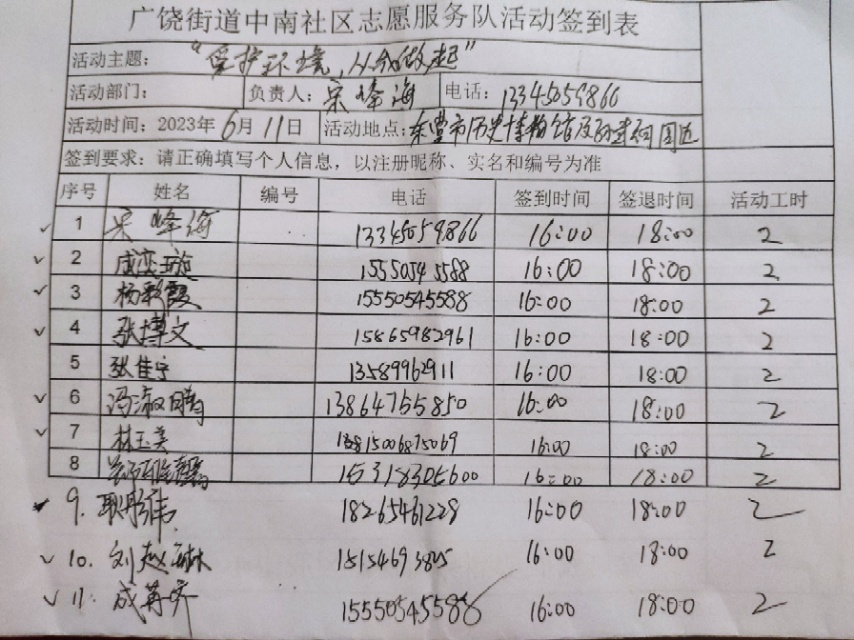 广饶街道中南社区志愿服务队活动签到表
活动主题: “爱护环境,从我做起”
活动部门: 负责人: 宋峰海 电话: 13345059866
活动时间: 2023年6月11日 活动地点: 东营市历史博物馆及孙武祠周边
签到要求: 请正确填写个人信息,以注册昵称、实名和编号为准
序号 姓名 编号 电话 签到时间 签退时间 活动工时
1 宋峰海 13345059866 16:00 18:00 2
2 15550545588 16:00 18:00 2
3 杨彩霞 15550545588 16:00 18:00 2
4 张博文 15865982961 16:00 18:00 2
5 张佳宁 13589962911 16:00 18:00 2
6 冯淑 13864755850 16:00 18:00 2
7 林玉美 16:00 18:00 2
8 15318305600 16:00 18:00 2
9. 耿彤伟 18265461229 16:00 18:00 2
10. 刘赵 16:00 18:00 2
11. 成苒乔 15550545588 16:00 18:00 2